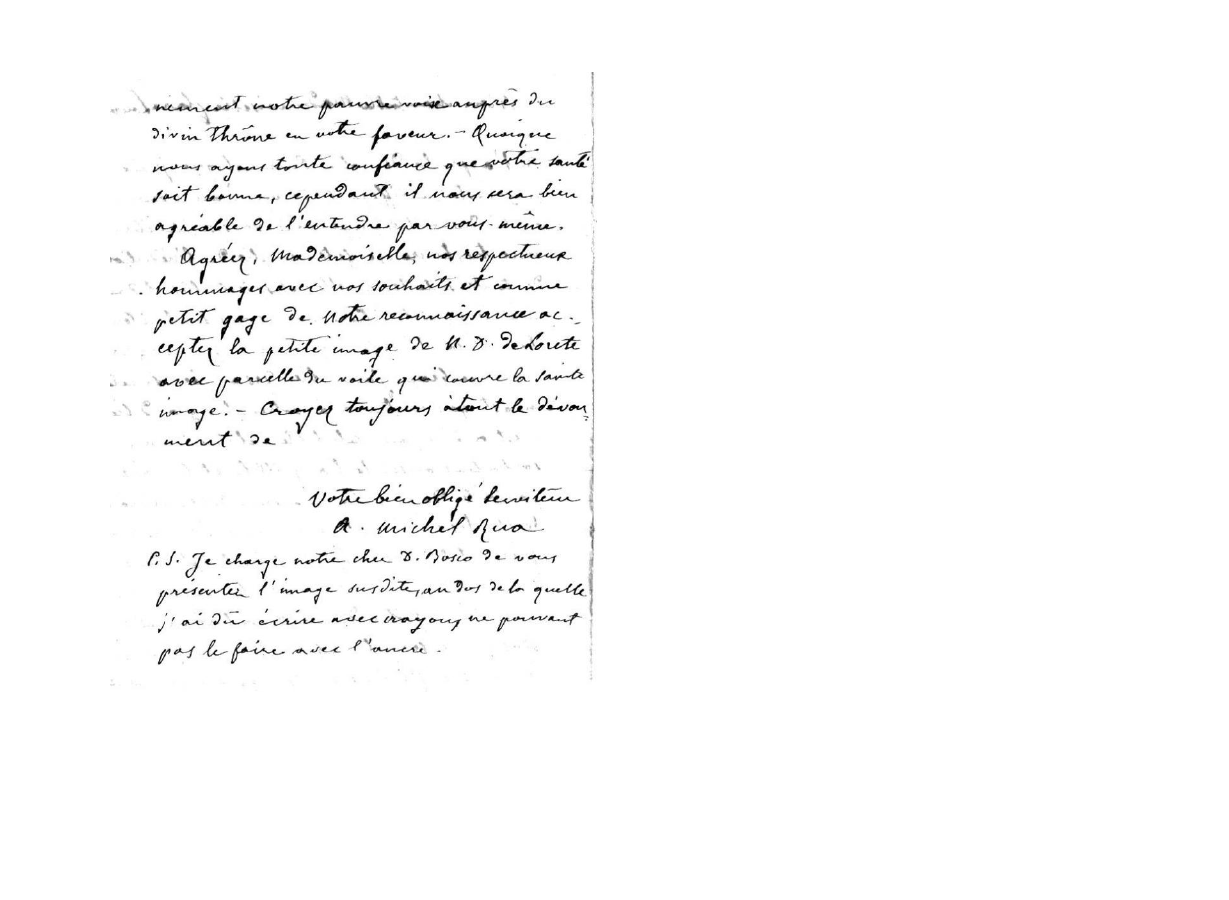 nement notre pauvre voix auprès du
divin thrône en votre faveur. - Quoique
nous ayons toute confiance que votre santé
soit bonne, cependant il nous sera bien
agréable de l'entendre par vous-même.
Agréez, Mademoiselle, nos respectueux
hommages avec nos souhaits et comme
petit gage de notre reconnaissance ac-
ceptez la petite image de N. D. de Lorete
avec parcelle du voile qui couvre la sainte
image. - Croyez toujours à tout le dévou-
ment de
Votre bien obligé Serviteur
A. Michel Rua
P.S. Je charge notre cher D. Bosco de vous
présenter l'image susdite, au dos de la quelle
j'ai dû écrire avec crayon, ne pouvant
pas le faire avec l'ancre.